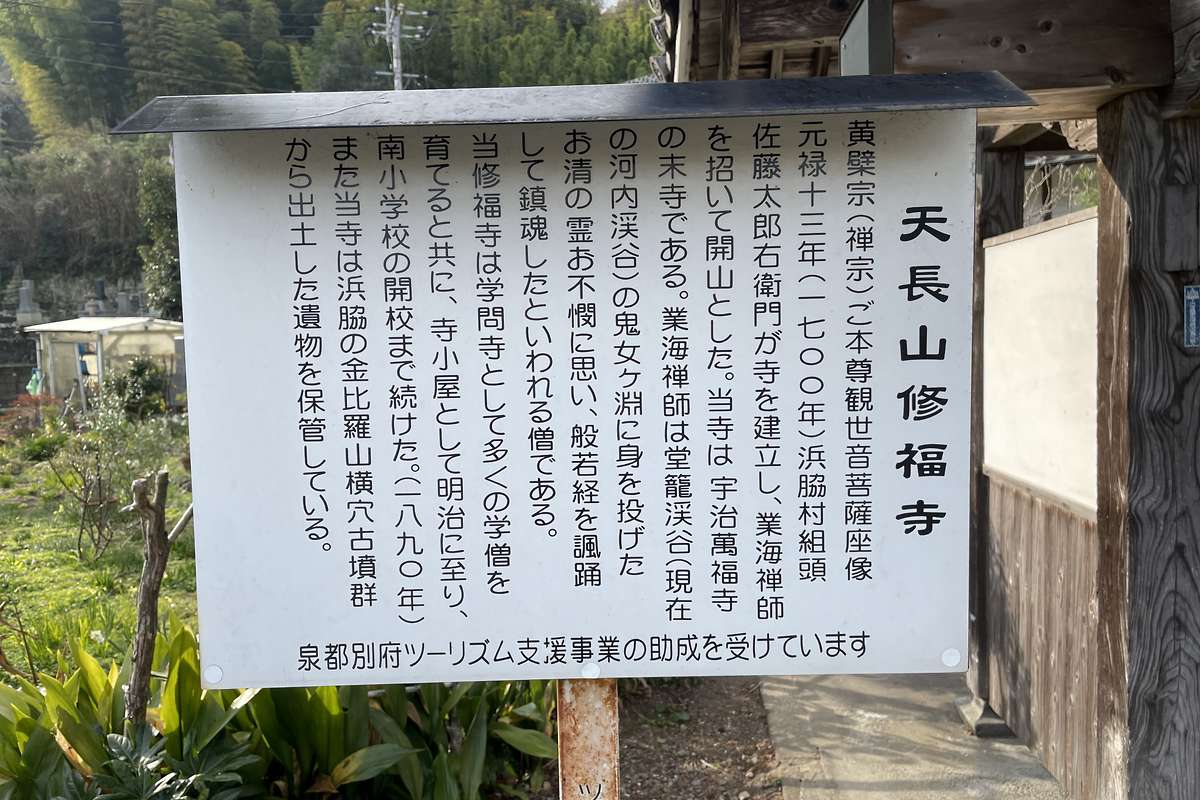 天長山修福寺
黄檗宗(禅宗)ご本尊観世音菩薩座像
元禄十三年(一七〇〇年)浜脇村組頭
佐藤太郎右衛門が寺を建立し、業海禅師
を招いて開山とした。当寺は宇治萬福寺
の末寺である。業海禅師は堂籠渓谷(現在
の河内渓谷)の鬼女ヶ淵に身を投げた
お清の霊お不憫に思い、般若経を諷踊
して鎮魂したといわれる僧である。
当修福寺は学問寺として多くの学僧を
育てると共に、寺小屋として明治に至り、
南小学校の開校まで続けた。(一八九〇年)
また当寺は浜脇の金比羅山横穴古墳群
から出土した遺物を保管している。
泉都別府ツーリズム支援事業の助成を受けています
ツ